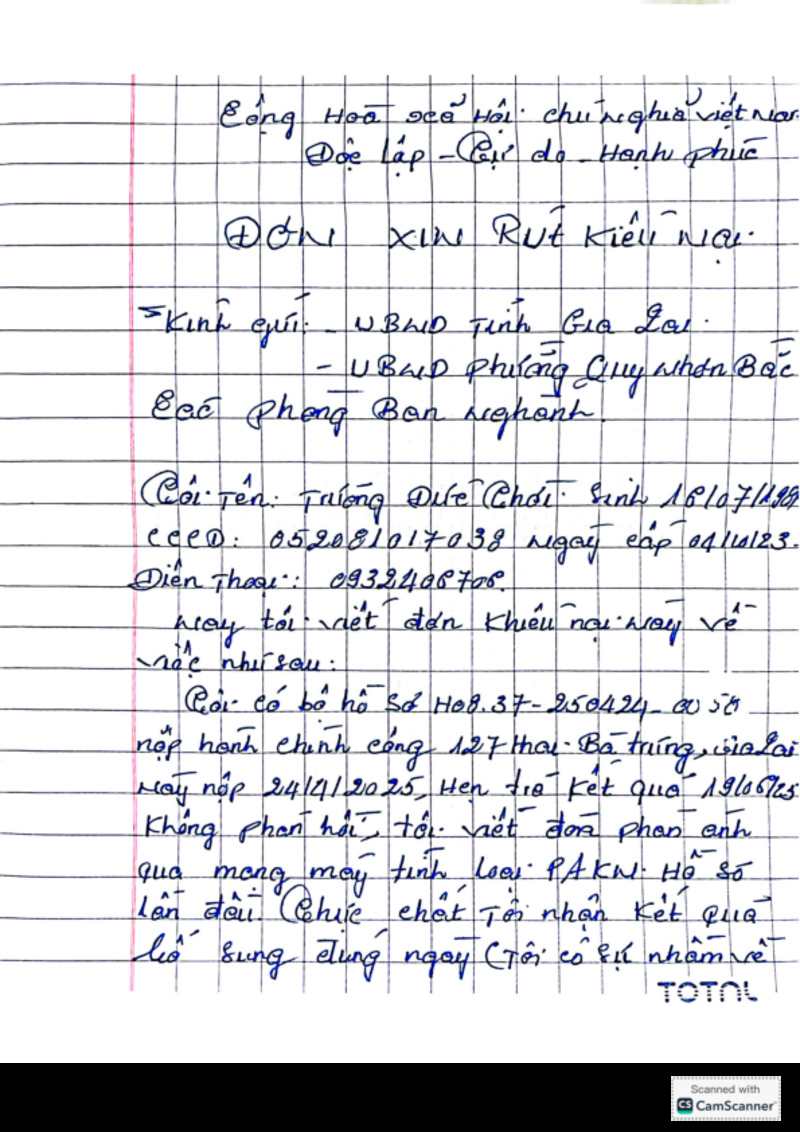 Cộng Hoà Xã Hội Chủ Nghĩa Việt Na
Độc lập - Tự do - Hạnh phúc
ĐƠN XIN RÚT KIẾU NẠI
Kính gửi: - UBND Tỉnh Gia Lai.
- UBND Phường Quy Nhơn Bắc
Các Phòng Ban Nghành.
Tôi Tên: Trương Đức Thới. Sinh 16/07/198
CCCD: 052081017038 Ngày cấp 04/10/23.
Điện Thoại: 0932406706.
Nay tôi viết đơn Khiếu nại này về
việc như sau:
Tôi có bộ hồ sơ H08.37-250424-
nộp hành chính công 127 Hai Bà Trưng, Gia Lai
ngày nộp 24/4/2025, Hẹn trả kết quả 19/06/25
Không phản hồi, tôi viết đơn phản ánh
qua mạng máy tính loại PAKN. Hồ Sơ
lần đầu. Thực chất Tôi nhận kết quả
bổ sung đúng ngày (Tôi có sự nhầm về
TOTAL
Scanned with
CS CamScanner